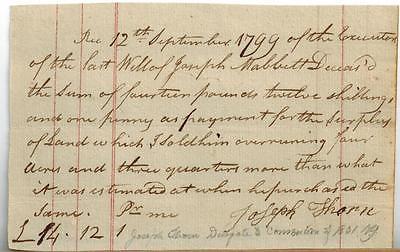 Rec 12th September 1799 of the Executors
of the last Will of Joseph Mabbett Deceas'd
the Sum of fourteen pounds twelve shillings,
and one penny as payment for the Surplus
of Land which I Sold him overruning four
Acres and three quarters more than what
it was estimated at when he purchased the
Same. Pr me Joseph Thorn
£ 14 . 12 1 Joseph Thorn Delegate to Convention of